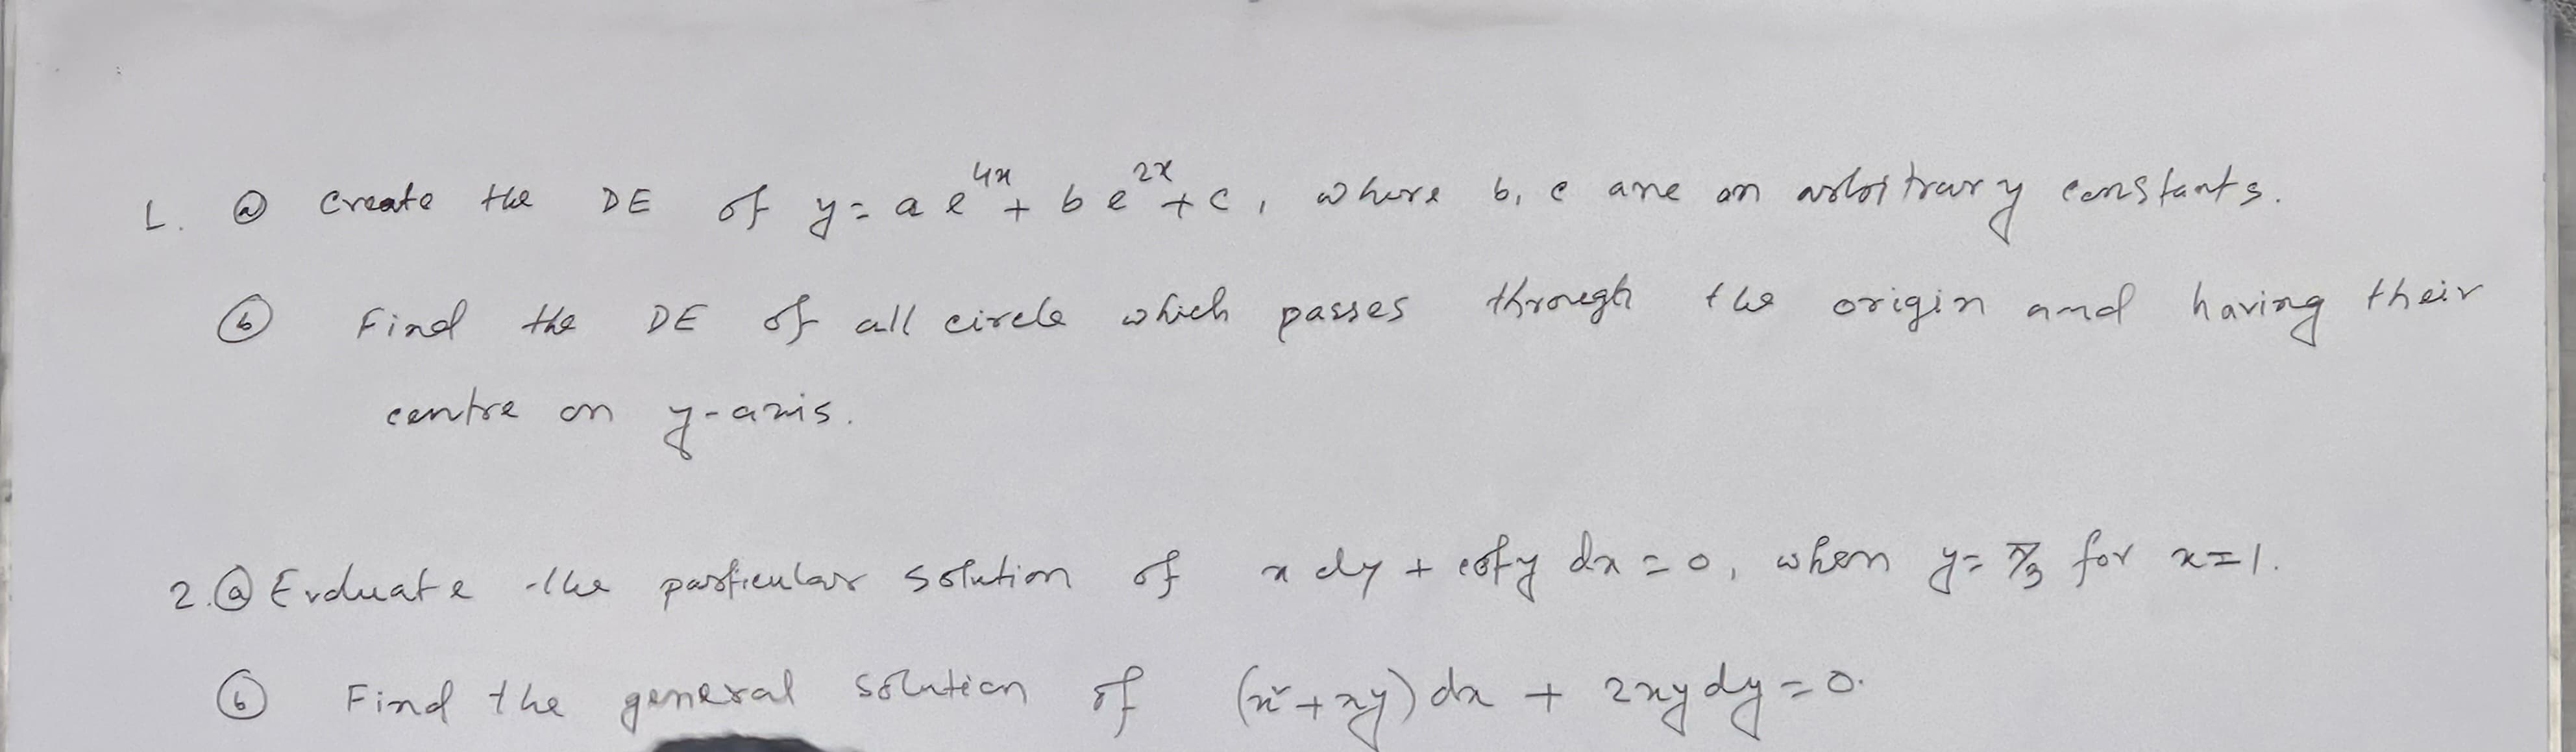 1. ⓐ Create the DE of y = a e^{4x} + b e^{2x} + c, where b, c are an arbitrary constants.
ⓑ Find the DE of all circle which passes through the origin and having their
centre on y-axis.
2. ⓐ Evaluate the particular solution of x dy + cot y dx = 0, when y = π/3 for x = 1.
ⓑ Find the general solution of (x² + xy) dx + 2xy dy = 0.